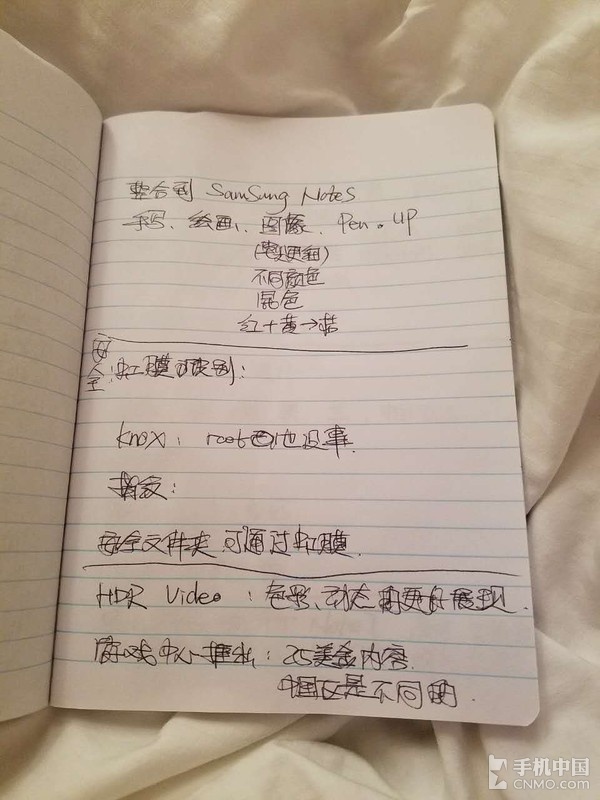 整合到 Samsung Notes
手写、绘画、图像、Pen.up
(笔头更细)
不同颜色
混色
红+黄→桔
安全:虹膜识别:
Knox: root 也没事.
指纹:
安全文件夹 可通过虹膜.
HDR Video: 色彩、动态的更好展现.
游戏中心推出: 25美金内容.
中国区是不同的.
手机中国
CNMO.COM